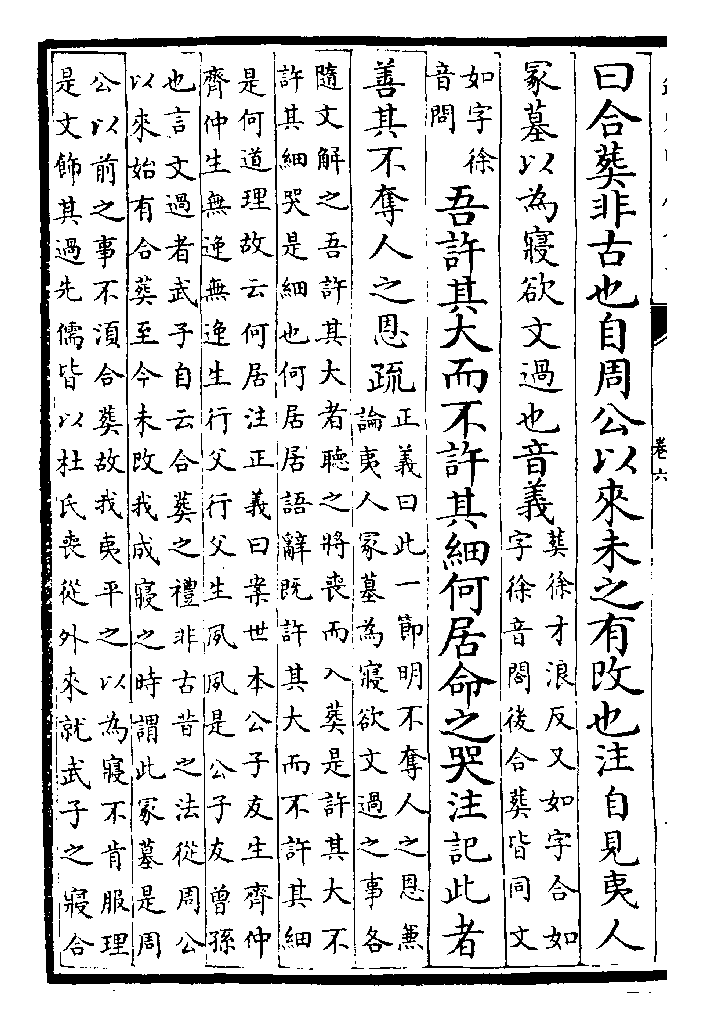 曰合葬非古也自周公以來未之有改也注自見夷人
冢墓以為寢欲文過也音義葬徐才浪反又如字合如
字徐音閤後合葬皆同文
如字徐
音問
吾許其大而不許其細何居命之哭注記此者
善其不奪人之恩疏正義曰此一節明不奪人之恩兼
論夷人冢墓為寢欲文過之事各
隨文解之吾許其大者聽之將喪而入葬是許其大不
許其細哭是細也何居居語辭既許其大而不許其細
是何道理故云何居注正義曰案世本公子友生齊仲
齊仲生無逸無逸生行父行父生夙夙是公子友曾孫
也言文過者武子自云合葬之禮非古昔之法從周公
以來始有合葬至今未改我成寢之時謂此冢墓是周
公以前之事不湏合葬故我夷平之以為寢不肯服理
是文飾其過先儒皆以杜氏喪從外來就武子之寢合
卷六